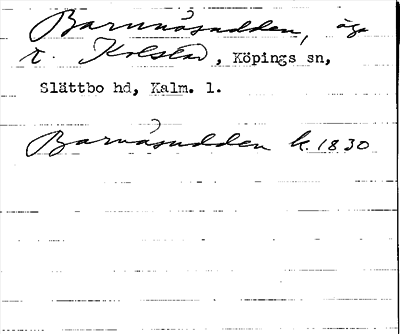 Barnnäsudden, äga
r. Kolstad, Köpings sn,
Slättbo hd, Kalm. l.
Barnäsudden k. 1830